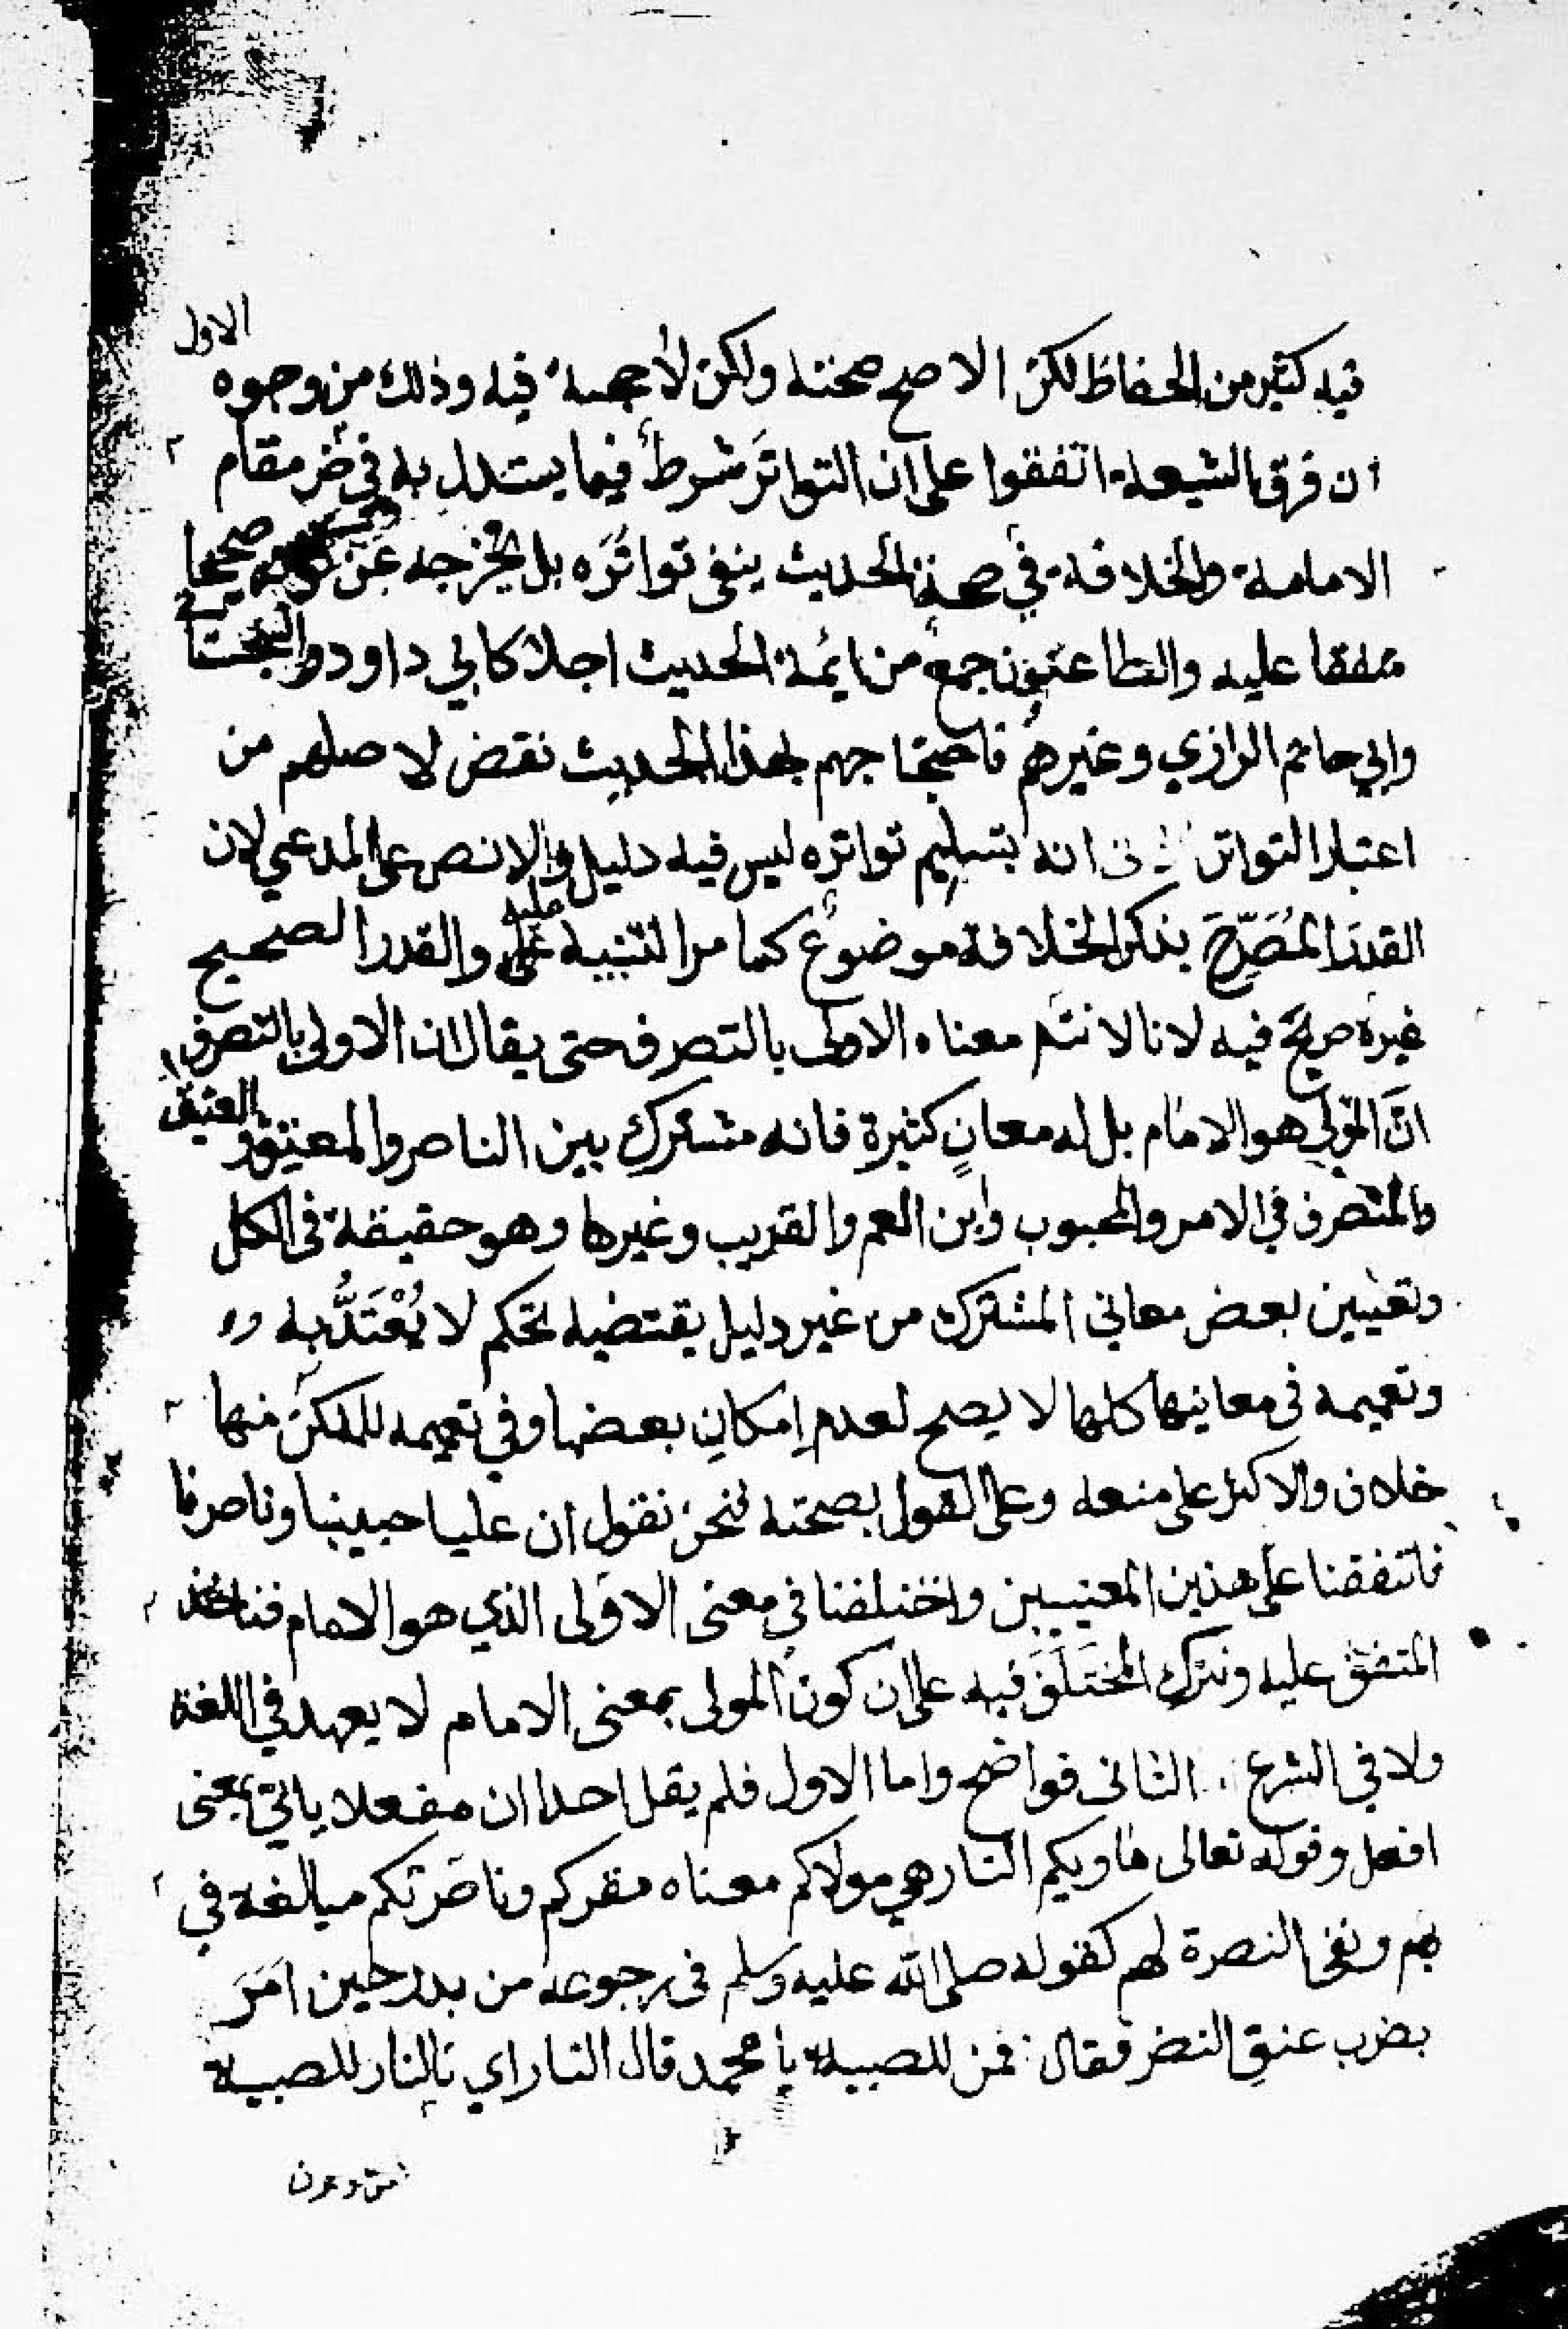 فيه كثير من الحفاظ لكن الاصح صحته ولكن لا حجة فيه وذلك من وجوه الاول
ان فرق الشيعة اتفقوا على ان التواتر شرط فيما يستدل به في مقام
الامامة والخلافة في صحة الحديث ينفى تواتره بل يخرجه عن كونه صحيحا
متفقا عليه والطاعنون جمع من ائمة الحديث اجلا كابي داود
وابي حاتم الرازي وغيرهم فاحتجاجهم بهذا الحديث نقض لاصلهم من
اعتبار التواتر انه بتسليم تواتره ليس فيه دليل والا نص على المدعي لان
القدر المُصَرِّحَ بذكر الخلافة موضوع كما مر التنبيه عليه والقدر الصحيح
غيره صريح فيه لانا لا نسلم معناه الاولى بالتصرف حتى يقال ان الاولى بالتصرف
انَّ المولي هو الامام بل له معانٍ كثيرة فانه مشترك بين الناصر والمعتِق والعتيق
والمتصرف في الامر والمحبوب وابن العم والقريب وغيرها وهو حقيقة في الكل
وتعيين بعض معاني المشترك من غير دليل يقتضيه تحكم لا يُعْتَدُّ به
وتعميمه في معانيها كلها لا يصح لعدم إمكانِ بعضها وفي تعميمه للممكن منها
خلاف والاكثر على منعه وعلى القول بصحته فنحن نقول ان عليا حبيبنا وناصرنا
فاتفقنا على هذين المعنيين واختلفنا في معنى الاَولى الذي هو الامام فناخذ
المتفق عليه ونترك المختَلَفَ فيه على ان كون المولى بمعنى الامام لا يعهد في اللغة
ولا في الشرع الثاني فواضح واما الاول فلم يقل احد ان مفعلا ياتي بمعنى
افعل وقوله تعالى ماويكم النار هي مولاكم معناه مقركم وناصَرتكم مبالغة في
ونفى النصرة لهم كقوله صلى الله عليه وسلم في رجوعه من بدر حين امَرَ
بضرب عنقِ النضر فقال فمن للصبية يا محمد قال النار اي فالنار للصبية